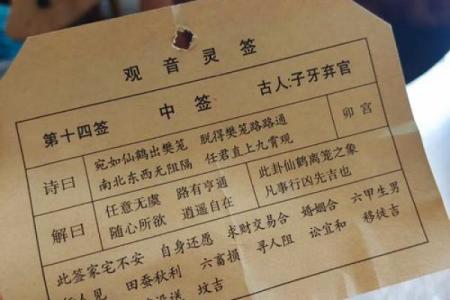 观音灵签
第十四签 中签 古人:子牙弃官
诗曰
宛如仙鹤出樊笼 脱得樊笼路路通
南北东西无阻隔 任君直上九霄观
卯宫
解曰
任意无虞 路有亨通
随心所欲 逍遥自在
此卦仙鹤离笼之象
凡事行凶先吉也
此签家宅不安 自身还愿 求财交易合 婚姻合 六甲生男
行人见 田蚕秋利 六畜损 寻人阻 讼宜和 移徒吉
送 坟吉